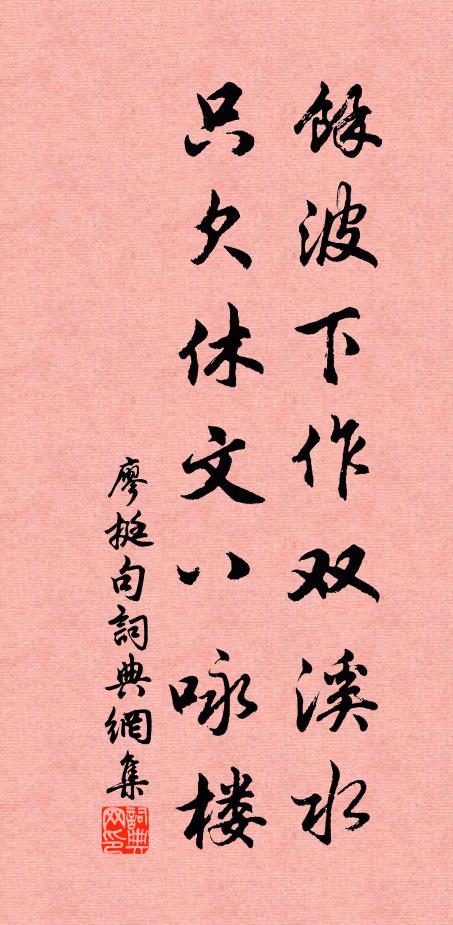 馀波下作双溪水
只欠休文八咏楼
廖挺句詞典網集
詞典网印